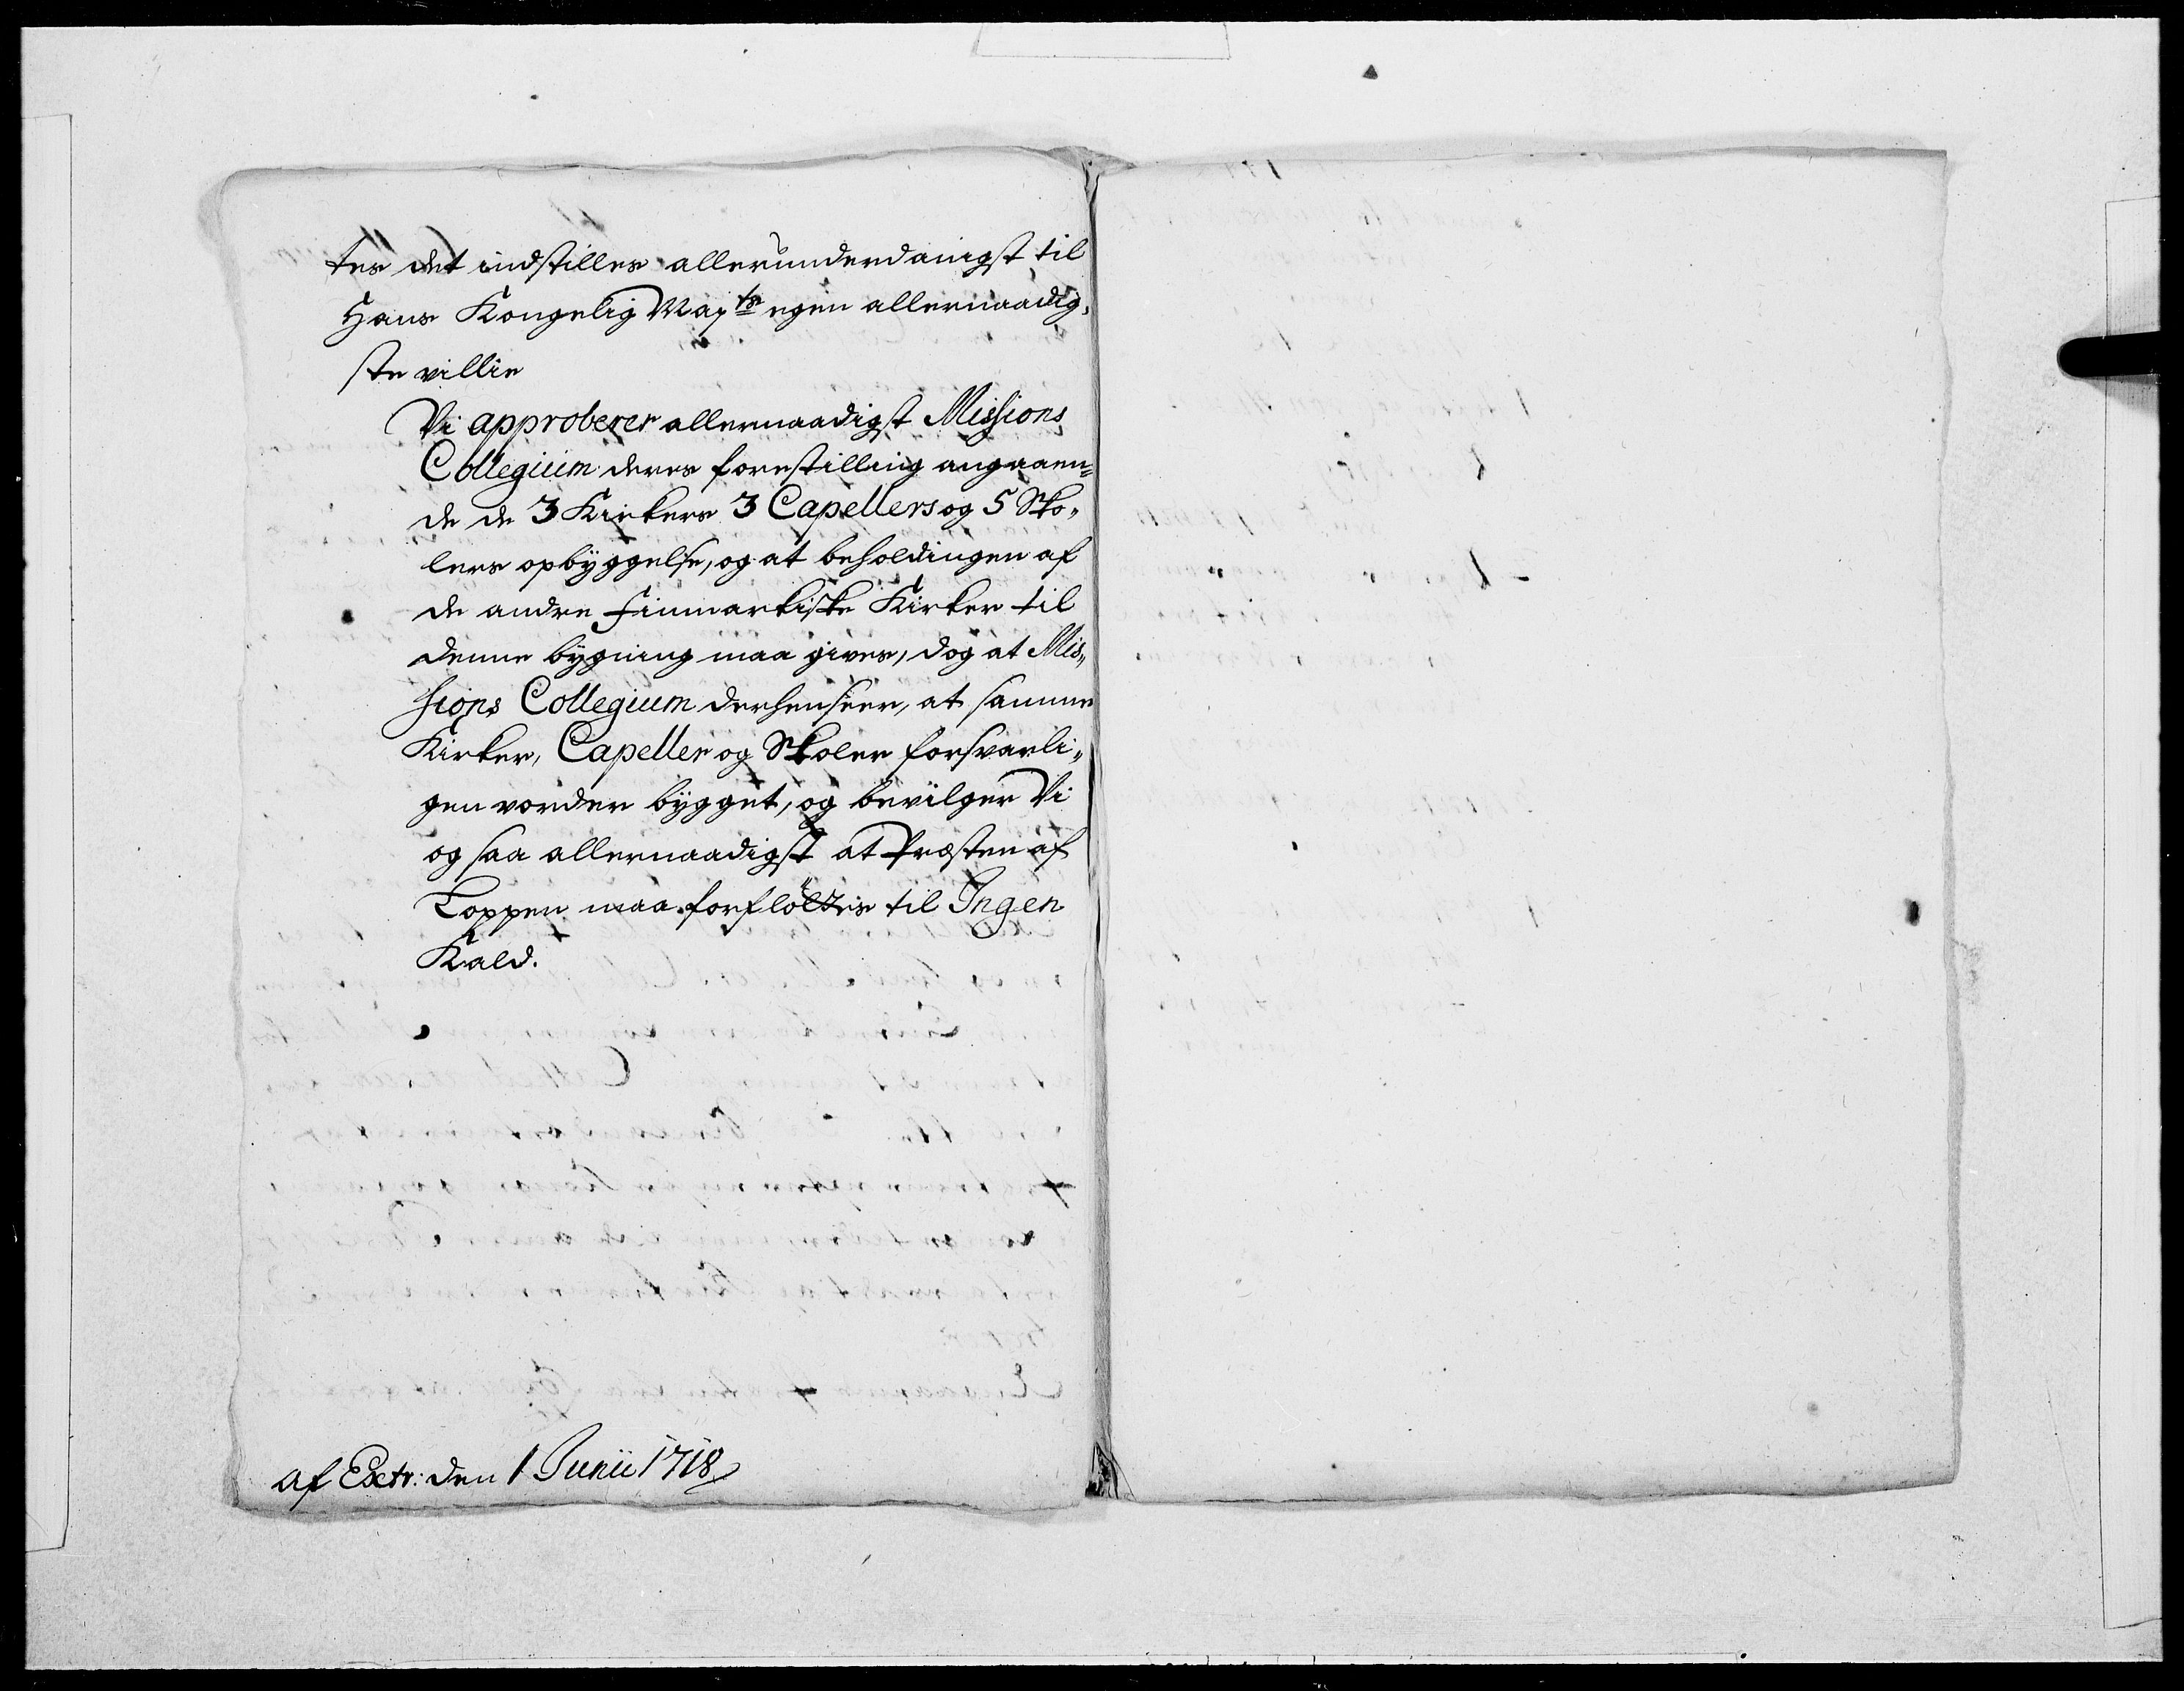 tes det indstilles allerunderdanigst til
Hans Kongelig May.ts egen allernaadig,
ste villie
Vi approberer allernaadigst Missions
Collegium deres forestilling angaaen=
de de 3 Kirkers 3 Capellers og 5 Sko,,
lers opbyggelse, og at beholdingen af
de andre Finmarkiske Kirker til
denne bygning maa gives, dog at Mis,,
sions Collegium derhenseer, at samme
Kirker, Capeller og Skoler forsvarli,,
gen vorder bygget, og bevilger Vi
og saa allernaadigst at Præsten af
Loppen maa forfløttes til Ingen
Kald.
af Extr: den 1 Junii 1718